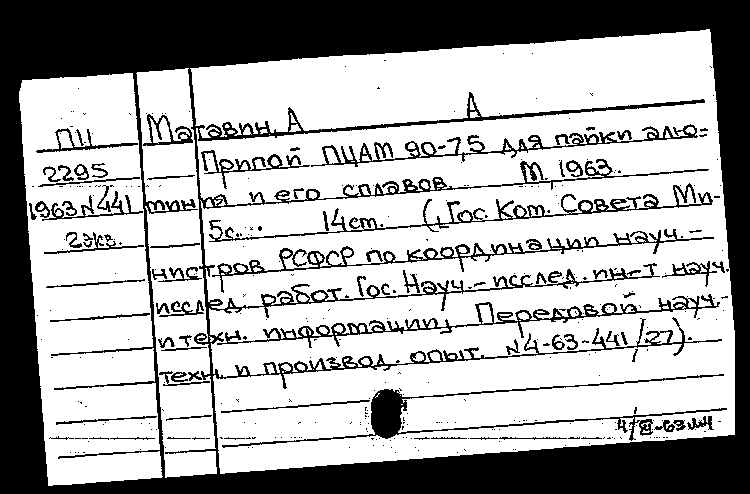 А
ПII Матавин, А
2295 Припой ПЦАМ 90-7,5 для пайки алю=
1963 N 441 миния и его сплавов. М, 1963.
2экз. 5с. 14см. (Гос. Ком. Совета Ми-
нистров РСФСР по координации науч.-
исслед. работ. Гос. Науч.-исслед. ин-т науч.
и техн. информации. Передовой науч.-
техн. и производ. опыт. N 4-63-441/27).